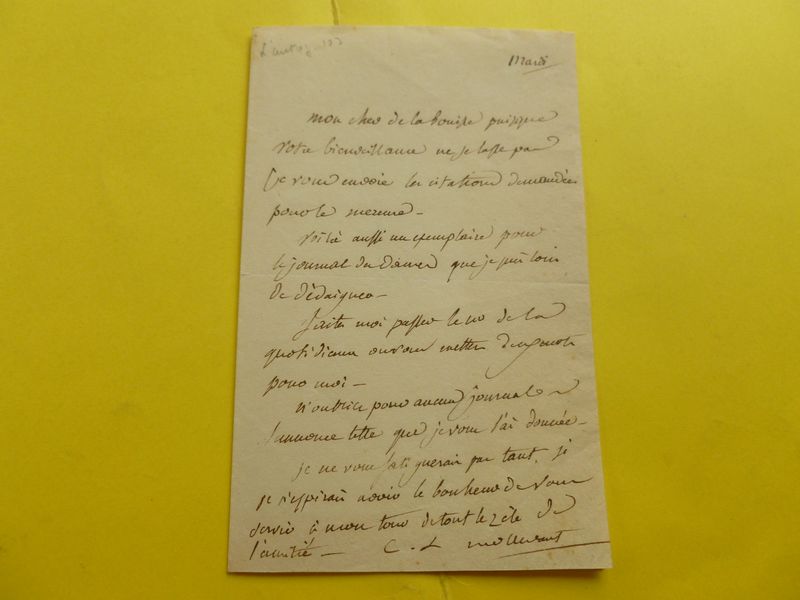 Mardi
mon cher de la bouisse puisque
votre bienveillance ne se lasse pas
je vous envoie les citations demandées
pour le mercure —
voilà aussi un exemplaire pour
le journal des Dames que je suis loin
de dédaigner —
faites moi passer le no de la
quotidienne ou vous mettrez
pour moi —
n'oubliez pour aucun journal
l'annonce telle que je vous l'ai donnée —
je ne vous fatiguerais pas tant, si
je n'espérais avoir le bonheur de vous
servir à mon tour de tout le zèle de
l'amitié — C. L. mollevaut